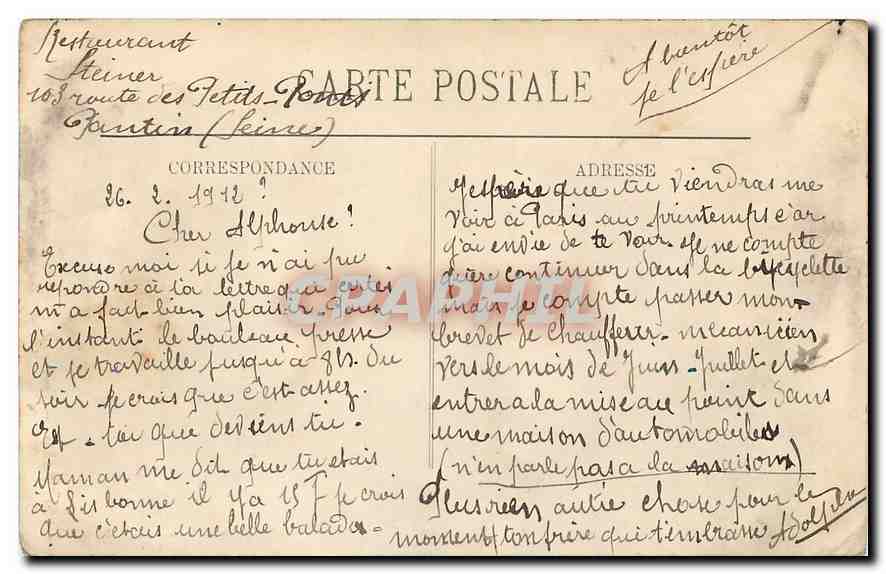 Restaurant
Steiner
103 route des Petits-Ponts
Pantin (Seine)
A bientôt
je l'espère
CARTE POSTALE
CORRESPONDANCE
26. 2. 1912 ?
Cher Alphonse !
Excuse moi si je n'ai pu
repondre à ta lettre qui certes
m'a fait bien plaisir. Pour
l'instant le bouleau presse
et je travaille jusqu'à 8h. du
soir. je crois que c'est assez.
Et - toi que deviens tu.
Maman me dit que tu étais
à Lisbonne il y a 15 j je crois
que c'etais une belle balade.
ADRESSE
J'espère que tu viendras me
voir à Paris au printemps c'ar
j'ai envie de te voir. Je ne compte
guère continuer dans la bicyclette
mais je compte passer mon
brevet de chauffeur-mecanicien
vers le mois de Juin-Juillet et
entrer a la mise au point dans
une maison d'automobiles
(n'en parle pas a la maison)
Plus rien autre chose pour le
moment ton frère qui t'embrasse Adolphe
CPAPHIL